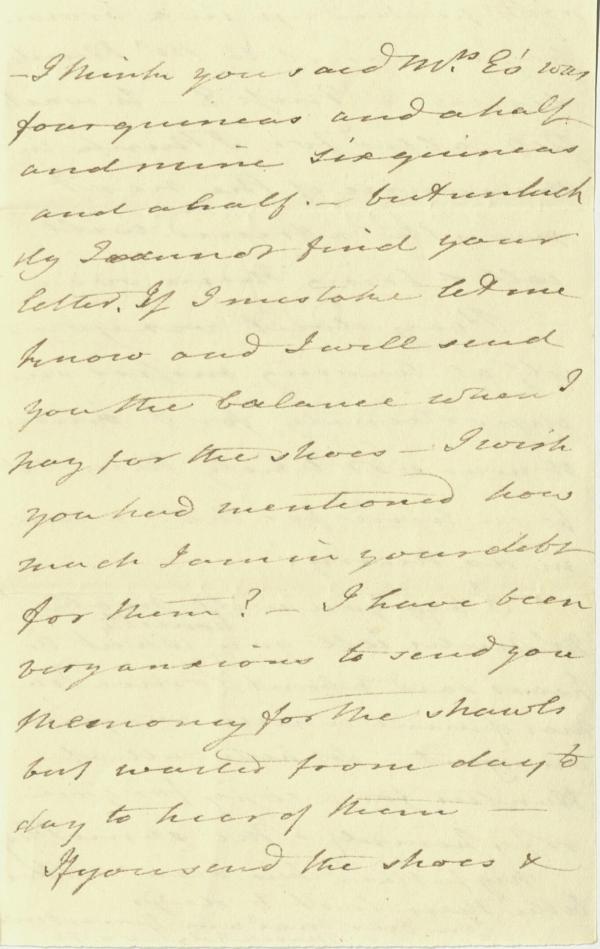 – I think you said Mrs. E's was
four guineas and a half
and mine six guineas
and a half. – but unluck
ily I cannot find your
letter. If I mistake let me
know and I will send
you the balance when I
pay for the shoes – I wish
you had mentioned how
much I am in your debt
for them? – I have been
very anxious to send you
the money for the shawls
but waited from day to
day to hear of them —
If you send the shoes &